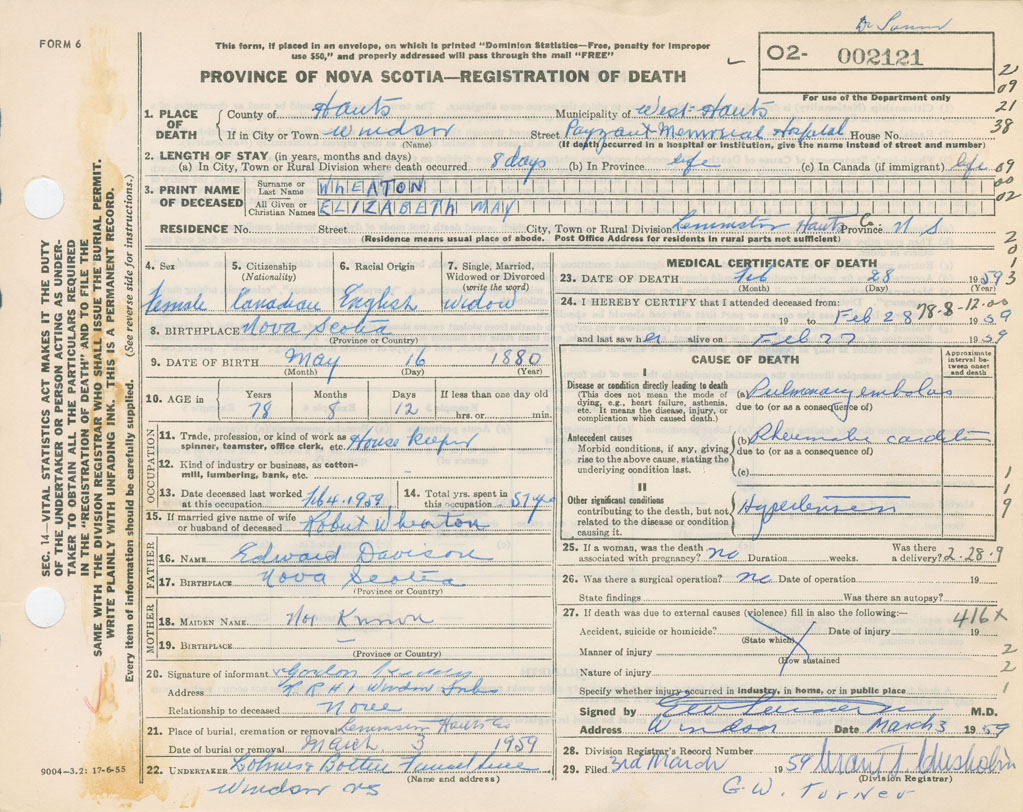 FORM 6
This form, if placed in an envelope, on which is printed "Dominion Statistics—Free, penalty for improper
use $50," and properly addressed will pass through the mail "FREE"
PROVINCE OF NOVA SCOTIA—REGISTRATION OF DEATH
02- 002121
For use of the Department only
2
09
21
38
1. PLACE OF DEATH
County of Hants
Municipality of West-Hants
If in City or Town Windsor
(Name)
Street Payzant Memorial Hospital House No.
(If death occurred in a hospital or institution, give the name instead of street and number)
2. LENGTH OF STAY (in years, months and days)
(a) In City, Town or Rural Division where death occurred 8 days (b) In Province life (c) In Canada (if immigrant) life
09
00
02
3. PRINT NAME OF DECEASED
Surname or Last Name WHEATON
All Given or Christian Names ELIZABETH MAY
RESIDENCE No. Street City, Town or Rural Division Hants Co Province N S
(Residence means usual place of abode. Post Office Address for residents in rural parts not sufficient)
2
0
1
3
4. Sex
female
5. Citizenship
(Nationality)
Canadian
6. Racial Origin
English
7. Single, Married,
Widowed or Divorced
(write the word)
Widow
8. BIRTHPLACE Nova Scotia
(Province or Country)
9. DATE OF BIRTH May 16 1880
(Month) (Day) (Year)
10. AGE in Years Months Days If less than one day old
78 8 12 hrs. or min.
OCCUPATION
11. Trade, profession, or kind of work as
spinner, teamster, office clerk, etc. House keeper
12. Kind of industry or business, as cotton-
mill, lumbering, bank, etc.
13. Date deceased last worked
at this occupation Feb 4 1959
14. Total yrs. spent in
this occupation 57 yr
15. If married give name of wife
or husband of deceased Robert Wheaton
FATHER
16. NAME Edward Davison
17. BIRTHPLACE Nova Scotia
(Province or Country)
MOTHER
18. MAIDEN NAME Not Known
19. BIRTHPLACE —
(Province or Country)
20. Signature of informant Gordon
Address R R # 1 Windsor
Relationship to deceased None
21. Place of burial, cremation or removal Hants Co
Date of burial or removal March 3 1959
22. UNDERTAKER Funeral Home
(Name and address)
Windsor NS
9004—3.2: 17-6-55
MEDICAL CERTIFICATE OF DEATH
23. DATE OF DEATH Feb 28 1959
(Month) (Day) (Year)
24. I HEREBY CERTIFY that I attended deceased from:
78-8-12-00
19 to Feb 28 1959
and last saw her alive on Feb 27 1959
CAUSE OF DEATH
Approximate interval between onset and death
I
Disease or condition directly leading to death
(This does not mean the mode of
dying, e.g., heart failure, asthenia,
etc. It means the disease, injury, or
complication which caused death.)
(a) Pulmonary embolus
due to (or as a consequence of)
Antecedent causes
Morbid conditions, if any, giving
rise to the above cause, stating the
underlying condition last.
(b) Rheumatic carditis
due to (or as a consequence of)
(c)
II
Other significant conditions
contributing to the death, but not
related to the disease or condition
causing it.
Hypertension
1
1
9
25. If a woman, was the death
associated with pregnancy? no Duration weeks. Was there
a delivery? 2-28-9
26. Was there a surgical operation? no Date of operation 19
State findings Was there an autopsy?
27. If death was due to external causes (violence) fill in also the following:—
416X
Accident, suicide or homicide? Date of injury 19
(State which)
Manner of injury 2
(How sustained
Nature of injury 2
Specify whether injury occurred in industry, in home, or in public place 1
Signed by M.D.
Address Windsor Date March 3 1959
28. Division Registrar's Record Number
29. Filed 3rd March 1959
(Division Registrar)
G. W. Turner
SEC. 14—VITAL STATISTICS ACT MAKES IT THE DUTY
OF THE UNDERTAKER OR PERSON ACTING AS UNDER-
TAKER TO OBTAIN ALL THE PARTICULARS REQUIRED
IN THE "REGISTRATION OF DEATH" AND TO FILE THE
SAME WITH THE DIVISION REGISTRAR WHO SHALL ISSUE THE BURIAL PERMIT.
WRITE PLAINLY WITH UNFADING INK. THIS IS A PERMANENT RECORD.
Every item of information should be carefully supplied. (See reverse side for instructions.)